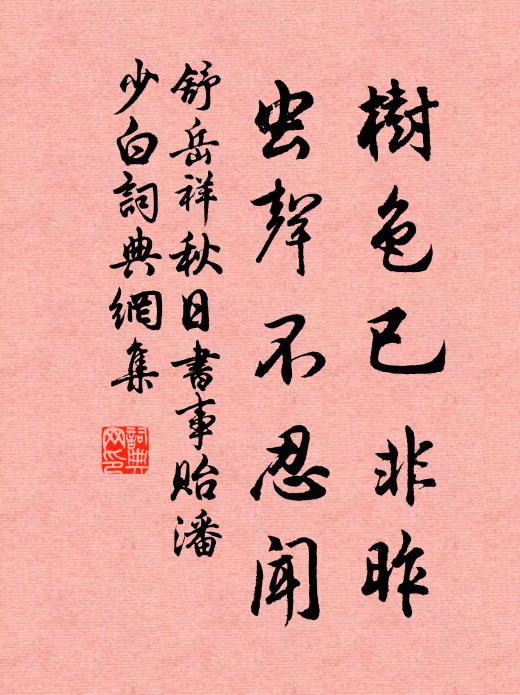 樹色已非昨
虫聲不忍聞
舒岳祥秋日書事貽潘
少白詞典網集
詞典網印